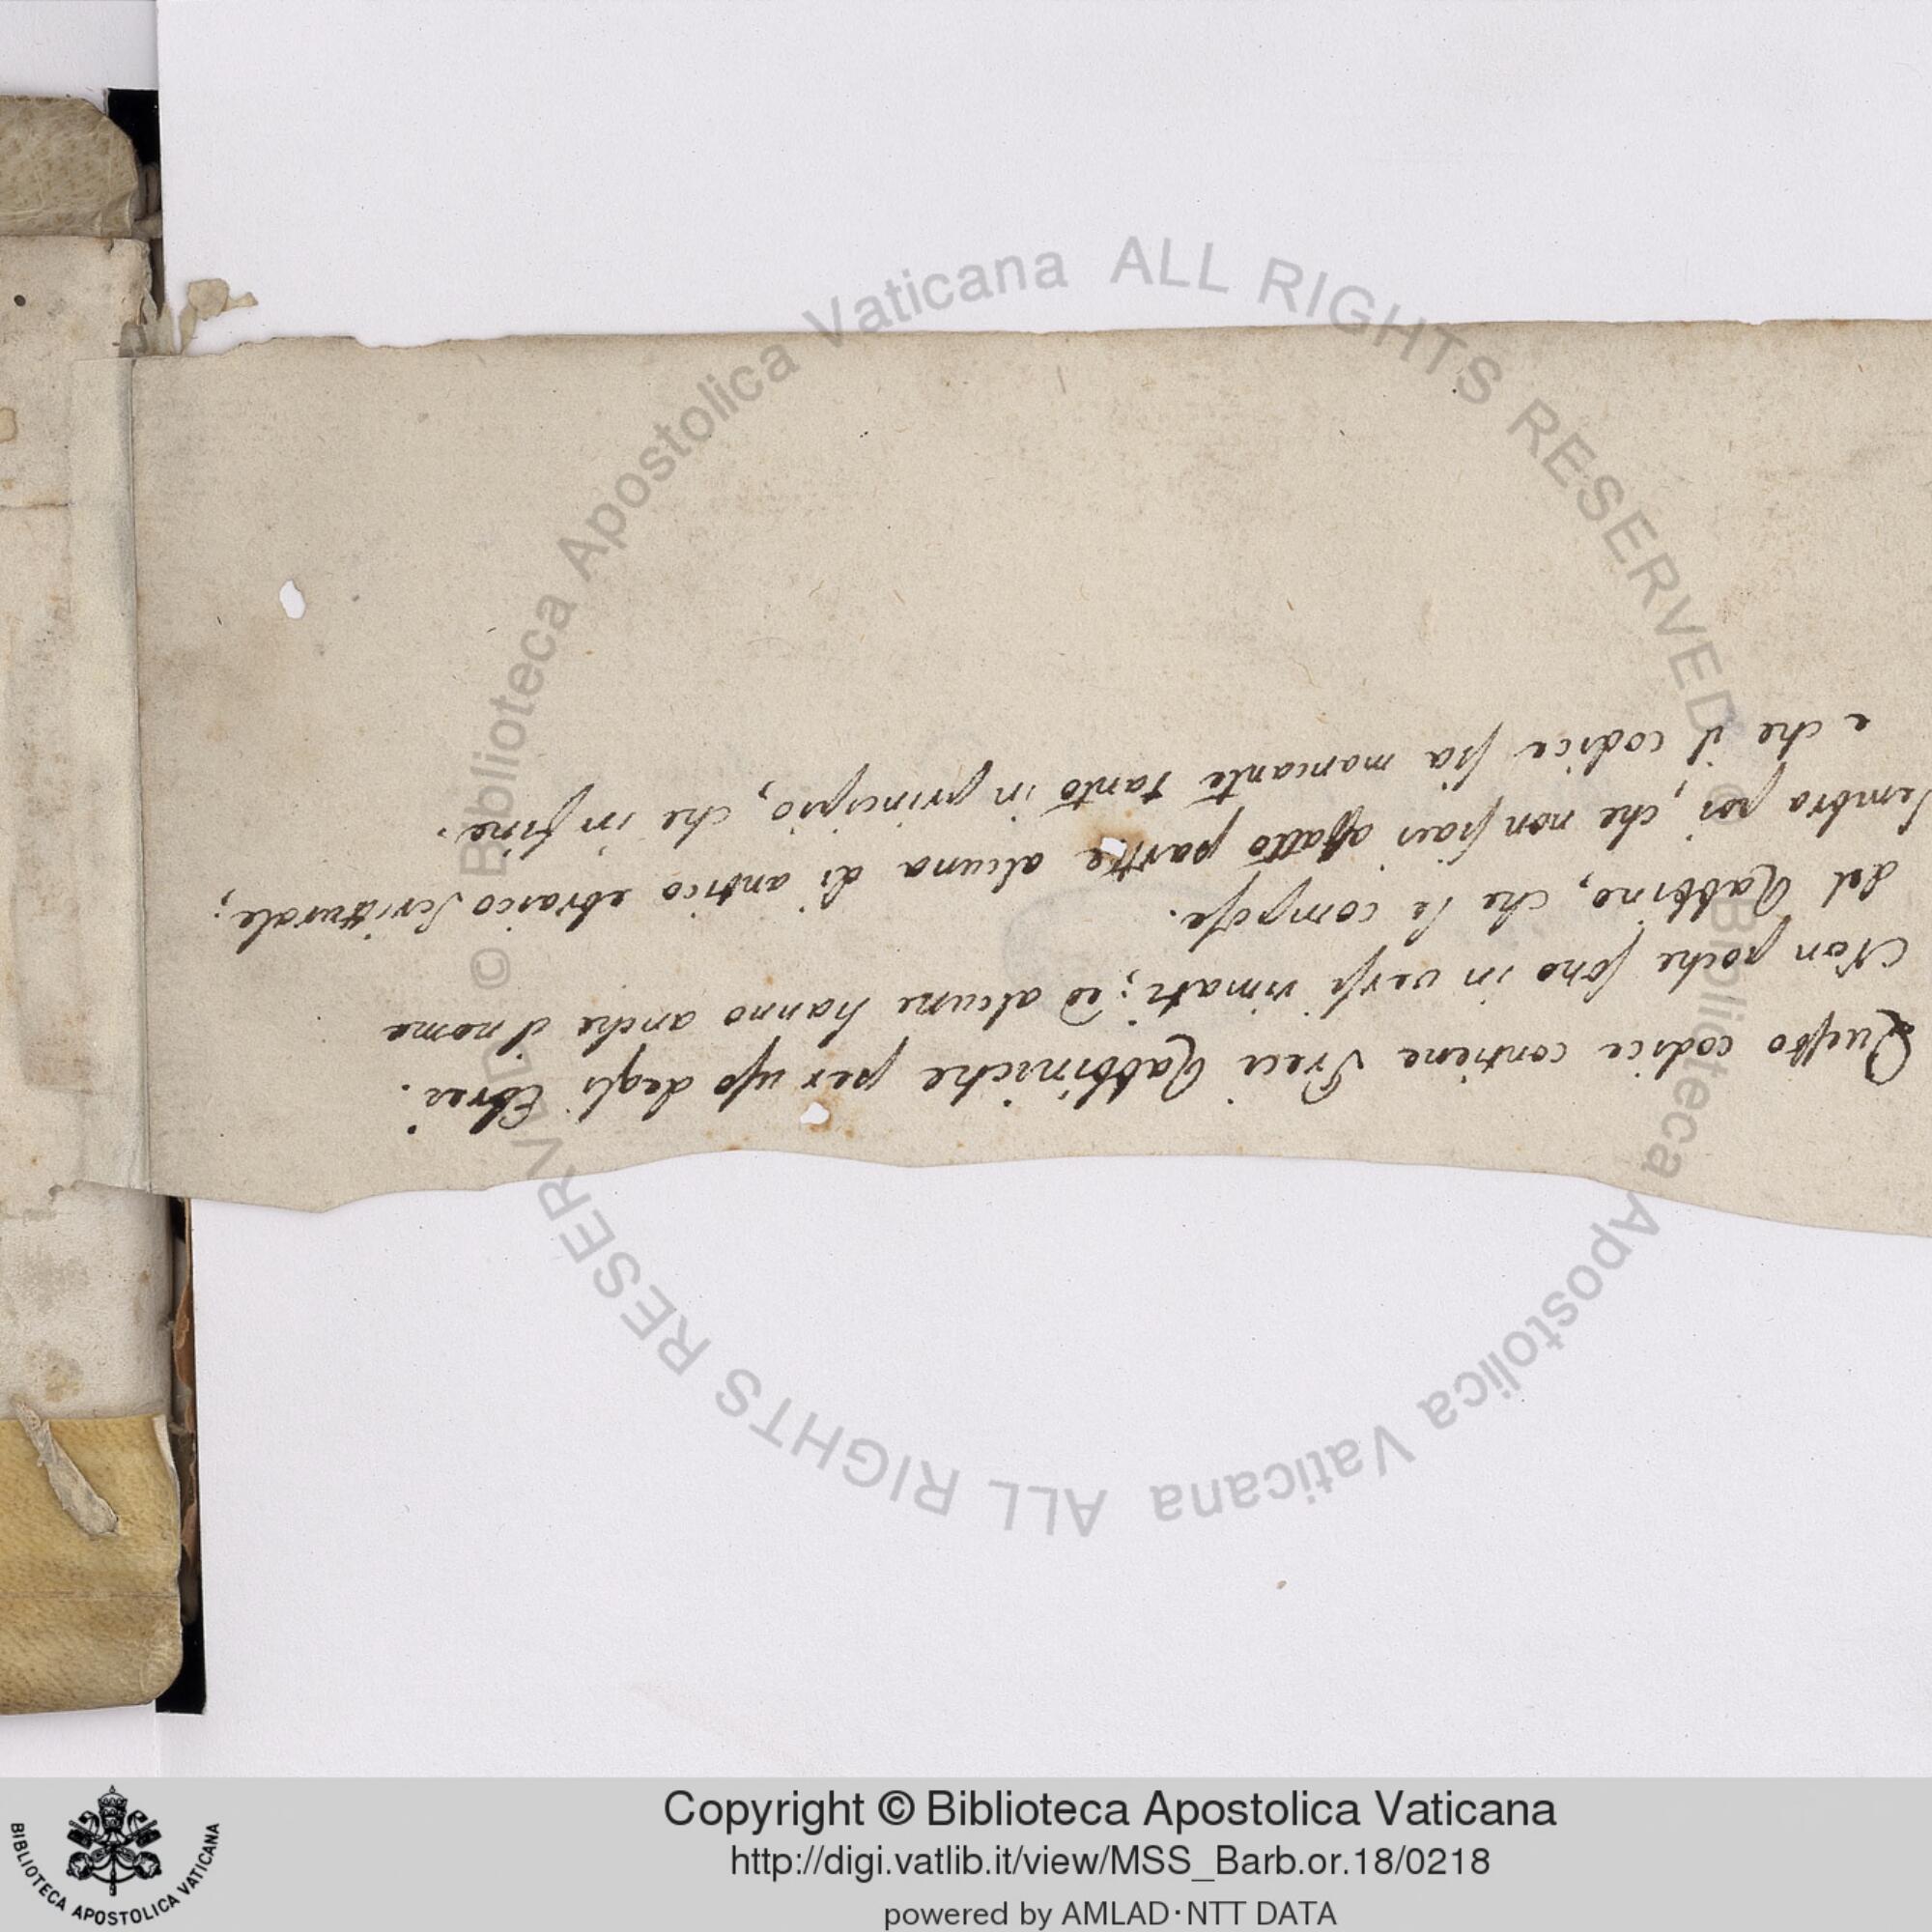 Questo codice contiene Preci Rabbiniche per uso degli Ebrei.
Non poche sono in versi rimati; ed alcune hanno anche il nome
del Rabbino, che le compose.
Sembra poi, che non siavi affatto parte alcuna di antico ebraico Scritturale;
e che il codice sia mancante tanto in principio, che in fine.
© Biblioteca Apostolica Vaticana ALL RIGHTS RESERVED
© Biblioteca Apostolica Vaticana ALL RIGHTS RESERVED
BIBLIOTECA APOSTOLICA VATICANA
Copyright © Biblioteca Apostolica Vaticana
http://digi.vatlib.it/view/MSS_Barb.or.18/0218
powered by AMLAD·NTT DATA